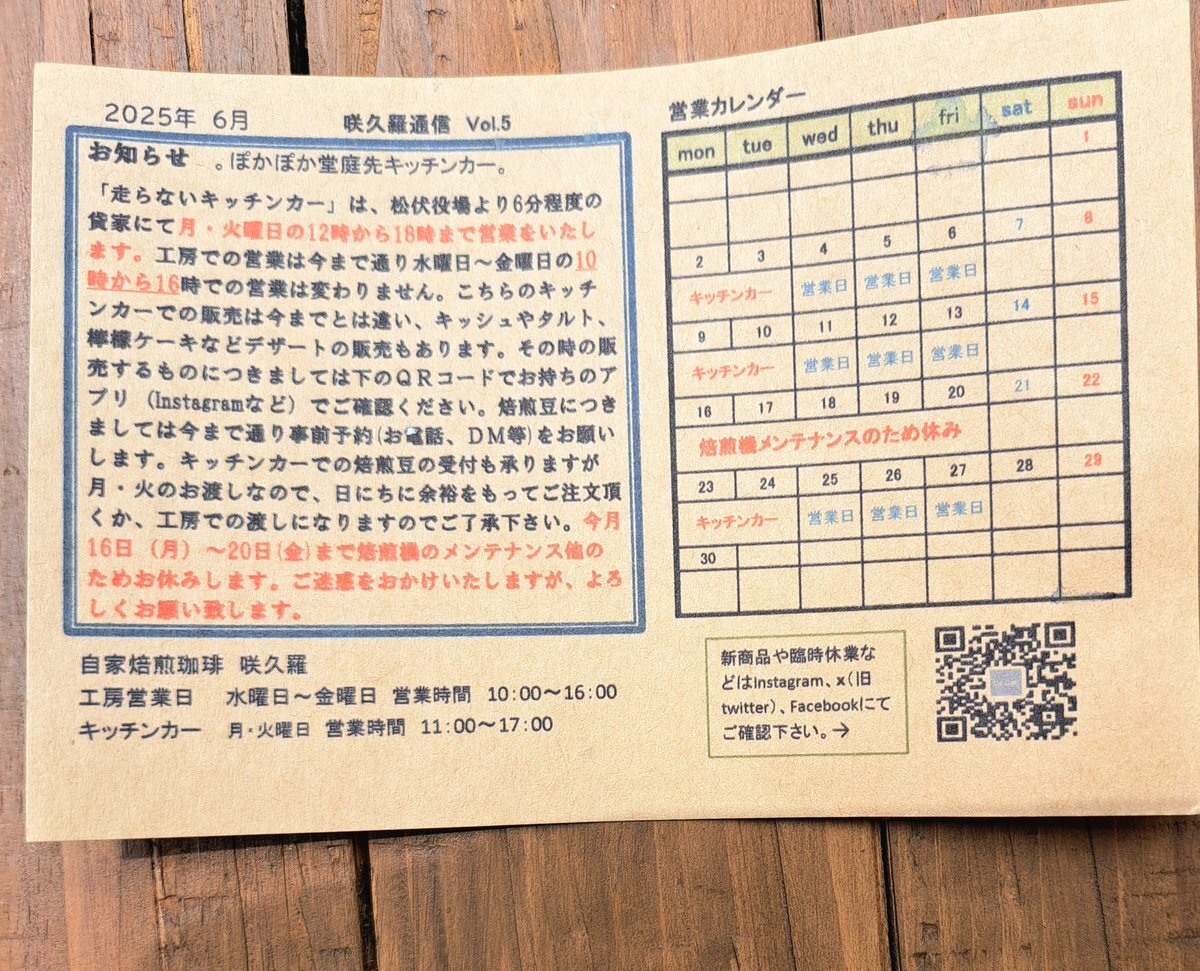 2025年 6月 咲久羅通信 Vol.5
お知らせ 。ぽかぽか堂庭先キッチンカー。
「走らないキッチンカー」は、松伏役場より6分程度の
貸家にて月・火曜日の12時から18時まで営業をいたし
ます。工房での営業は今まで通り水曜日～金曜日の10
時から16時での営業は変わりません。こちらのキッチ
ンカーでの販売は今までとは違い、キッシュやタルト、
檸檬ケーキなどデザートの販売もあります。その時の販
売するものにつきましては下のQRコードでお持ちのア
プリ（Instagramなど）でご確認ください。焙煎豆につき
ましては今まで通り事前予約(お電話、DM等)をお願い
します。キッチンカーでの焙煎豆の受付も承りますが
月・火のお渡しなので、日にちに余裕をもってご注文頂
くか、工房での渡しになりますのでご了承下さい。今月
16日（月）～20日(金)まで焙煎機のメンテナンス他の
ためお休みします。ご迷惑をおかけいたしますが、よろ
しくお願い致します。
自家焙煎珈琲 咲久羅
工房営業日 水曜日～金曜日 営業時間 10:00～16:00
キッチンカー 月・火曜日 営業時間 11:00～17:00
営業カレンダー
mon tue wed thu fri sat sun
1
2 3 4 5 6 7 8
キッチンカー 営業日 営業日 営業日
9 10 11 12 13 14 15
キッチンカー 営業日 営業日 営業日
16 17 18 19 20 21 22
焙煎機メンテナンスのため休み
23 24 25 26 27 28 29
キッチンカー 営業日 営業日 営業日
30
新商品や臨時休業な
どはInstagram、x（旧
twitter）、Facebookにて
ご確認下さい。→